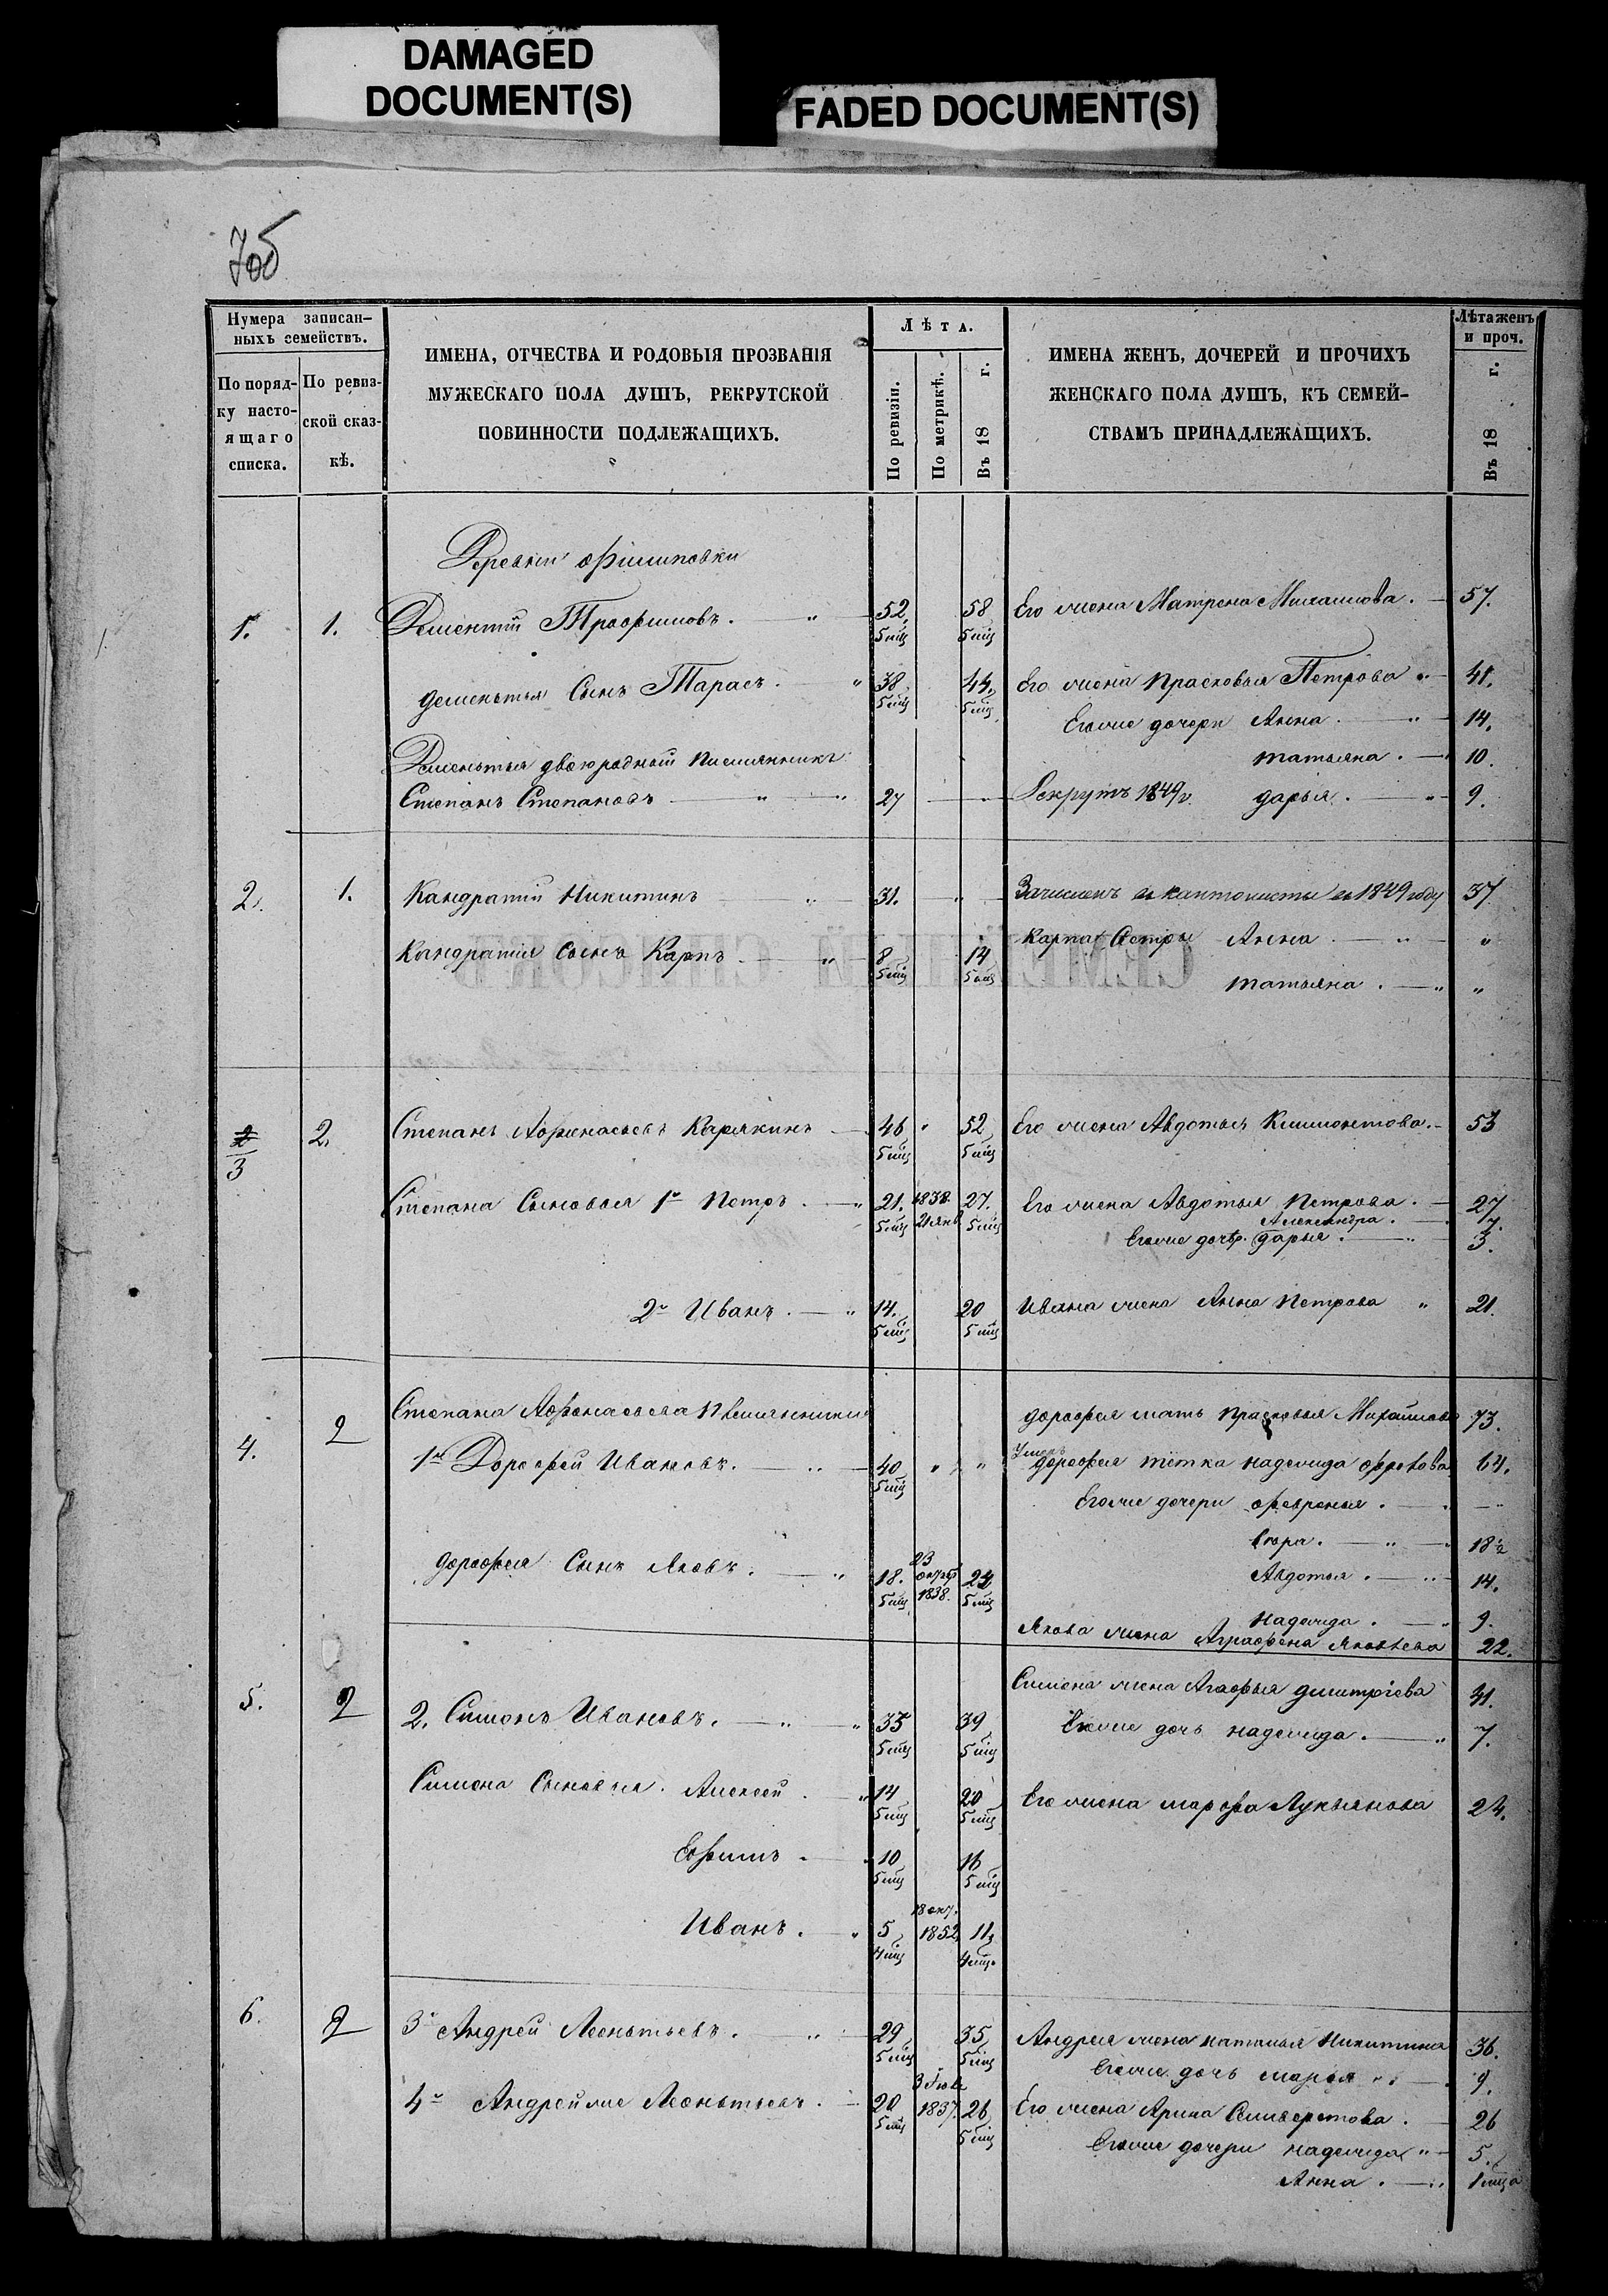 DAMAGED
DOCUMENT(S)
FADED DOCUMENT(S)
Нумера записан-
ныхъ семействъ.
По поряд-
ку насто-
ящаго
списка.
По ревиз-
ской сказ-
кѣ.
ИМЕНА, ОТЧЕСТВА И РОДОВЫЯ ПРОЗВАНІЯ
МУЖЕСКАГО ПОЛА ДУШЪ, РЕКРУТСКОЙ
ПОВИННОСТИ ПОДЛЕЖАЩИХЪ.
Лѣта.
По ревизіи.
По метрикѣ.
Въ 18 г.
ИМЕНА ЖЕНЪ, ДОЧЕРЕЙ И ПРОЧИХЪ
ЖЕНСКАГО ПОЛА ДУШЪ, КЪ СЕМЕЙ-
СТВАМЪ ПРИНАДЛЕЖАЩИХЪ.
Лѣта женъ
и проч.
Въ 18 г.
Деревни Филиповки
1. 1. Дементій Трофимовъ. 52, 5 мѣц 58 5 мѣц Его жена Матрена Михаилова. 57.
дементья Сынъ Тарасъ. 38, 5 мѣц 44, 5 мѣц Его жена Прасковья Петрова 41.
Егоже дочери Анна. 14.
Дементья двоюродный племянникъ татьяна. 10.
Степанъ Степановъ 27 Рекрутъ 1849г. дарья. 9.
2. 1. Кандратій Никитинъ 31. Зачисленъ въ кантонисты въ 1849 году 37
Кандратія Сынъ Карпъ 8 5 мѣц 14 5 мѣц Карпа Сестры Анна "
татьяна. "
СЕМЕЙНЫЙ СПИСОКЪ
2
3 2. Степанъ Афонасьевъ Карякинъ 46 5 мѣц 52 5 мѣц Его жена Авдотья Климонтова. 53
Степана Сыновья 1й Петръ. 21. 5 мѣц 1838. 21 янв 27. 5 мѣц Его жена Авдотья Петрова. 27
Александра. 7.
Егоже дочер. дарья. 3.
2й Иванъ. 14. 5 мѣц 20 5 мѣц Ивана жена Анна Петрова 21.
4. 2 Степана Афонасьева Племянники дорофея мать Прасковья Михайлова 73.
1й Дорофей Ивановъ. 40 5 мѣц Умеръ дорофея тётка надежда 64.
Егоже дочери февронья.
18½
дорофея Сынъ Яковъ. 18. 5 мѣц 23 октяб 1838. 24 5 мѣц Авдотья. 14.
Надежда. 9.
Якова жена Аграфена Яковлева 22.
5. 2 2. Симонъ Ивановъ. 33 5 мѣц 39 5 мѣц Симона жена Агафья дмитріева 41.
Егоже дочь надежда. 7.
Симона Сыновья. Алексей 14 5 мѣц 20 5 мѣц Его жена марфа Лукьянова 24.
Ефимъ. 10 5 мѣц 16 5 мѣц
Иванъ. 5 4 мѣц 18 окт. 1852 11, 4 мѣц.
6. 2 3й Андрей Леонтьевъ. 29 5 мѣц 35 5 мѣц Андрея жена наталья Никитина 36.
Егоже дочь марья 9.
4й Андрейже Леонтьевъ. 20 5 мѣц 3 Іюля 1837. 26 5 мѣц Его жена Арина Селиверстова. 26
Егоже дочери надежда 5.
Анна. 1 мѣца